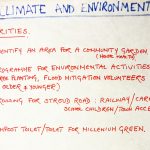 CLIMATE AND ENVIRONMENT
RITIES.
ENTIFY AN AREA FOR A COMMUNITY GARDEN
ROGRAMME FOR ENVIRONMENTAL ACTIVITIES
TREE PLANTING, FLOOD MITIGATION VOLUNTEERS
OLDER & YOUNGER)
ROLLING FOR STROUD ROAD: RAILWAY/CAR
SCHOOL CHILDREN/
MPOST TOILET/TOILET FOR MILLENIUM GREEN.